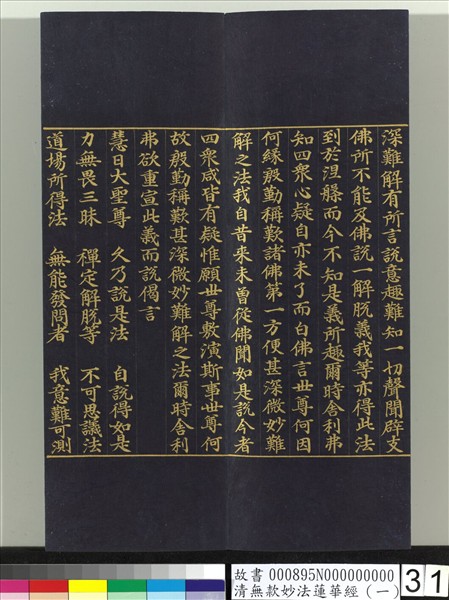 深難解有所言說意趣難知一切聲聞辟支
佛所不能及佛說一解脫義我等亦得此法
到於涅槃而今不知是義所趣爾時舍利弗
知四衆心疑自亦未了而白佛言世尊何因
何緣殷勤稱歎諸佛第一方便甚深微妙難
解之法我自昔來未曾從佛聞如是說今者
四衆咸皆有疑惟願世尊敷演斯事世尊何
故殷勤稱歎甚深微妙難解之法爾時舍利
弗欲重宣此義而說偈言
慧日大聖尊 久乃說是法 自說得如是
力無畏三昧 禪定解脫等 不可思議法
道場所得法 無能發問者 我意難可測
故書 000895N000000000
清無款妙法蓮華經(一)
31